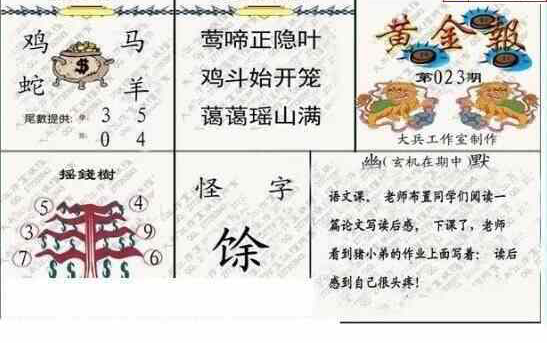 鸡 马
蛇 羊
尾數提供: 3 5
0 4
莺啼正隐叶
鸡斗始开笼
蔼蔼瑶山满
黄金報
第023期
大兵工作室制作
摇錢樹
5 4
3 9
7 6
怪 字
馀
幽(玄机在期中)默
语文课, 老师布置同学们阅读一
篇论文写读后感, 下课了, 老师
看到猪小弟的作业上面写着: 读后
感到自己很头疼!